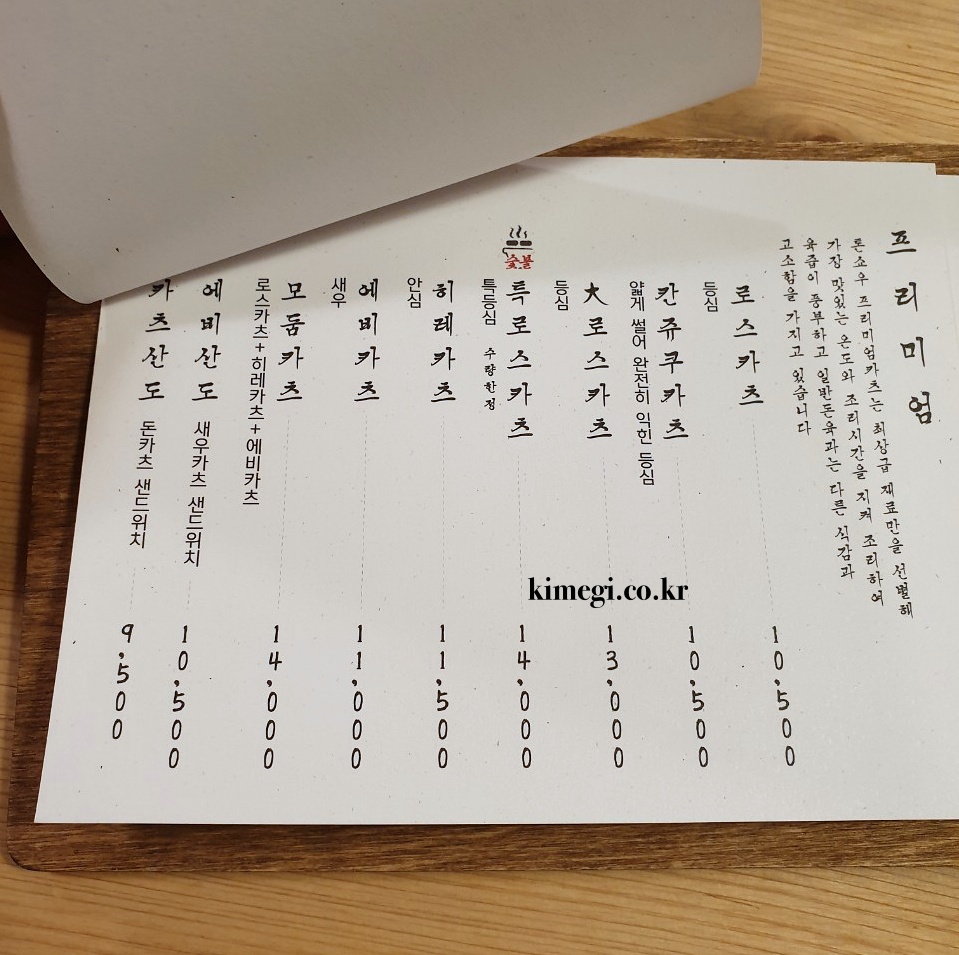 프리미엄
톤쇼우 프리미엄카츠는 최상급 재료만을 선별해
가장 맛있는 온도와 조리시간을 지켜 조리하여
육즙이 풍부하고 일반돈육과는 다른 식감과
고소함을 가지고 있습니다
로스카츠 10,500
등심
칸쥬쿠카츠 10,500
얇게 썰어 완전히 익힌 등심
大로스카츠 13,000
등심
숯불
특로스카츠 14,000
특등심 수량한정
히레카츠 11,500
안심
에비카츠 11,000
새우
모둠카츠 14,000
로스카츠+히레카츠+에비카츠
에비산도 새우카츠 샌드위치 10,500
카츠산도 돈카츠 샌드위치 9,500
kimegi.co.kr